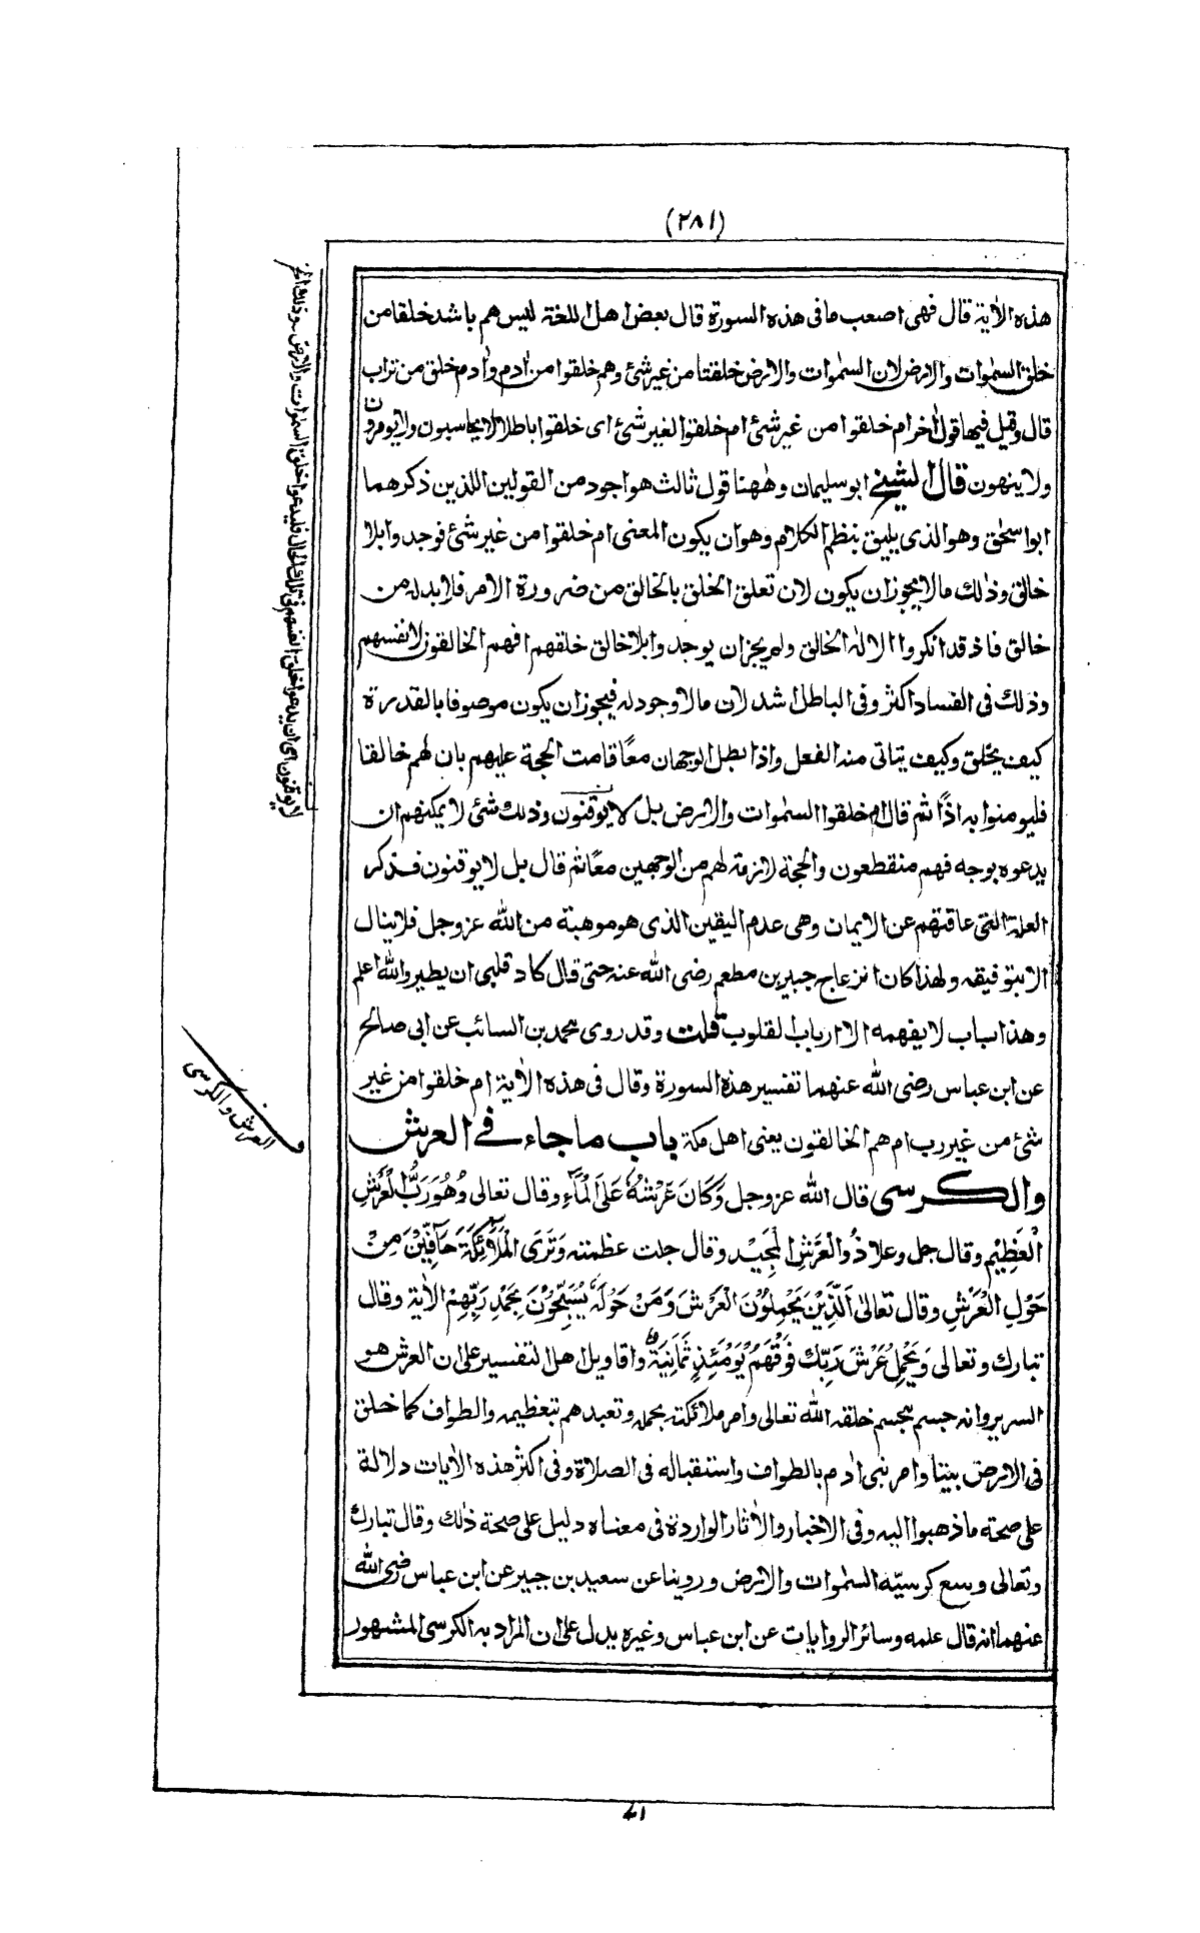 (٢٨١)
هذه الاٰية قال فهى اصعب ما فى هذه السورة قال بعض اهل اللغة ليس هم باشد خلقا من
خلق السمٰوات والارض لان السمٰوات والارض خلقتا من غير شئ وهم خلقوا من اٰدم واٰدم خلق من تراب
قال وقيل فيها قول اٰخر ام خلقوا من غير شئ ام خلقوا لغير شئ اى خلقوا باطلا لا يحاسبون ولا يؤمرون
ولا ينهون قال الشيخ ابو سليمان وهٰهنا قول ثالث هو اجود من القولين اللذين ذكرهما
ابو اسحٰق وهو الذى يليق بنظم الكلام وهو ان يكون المعنى ام خلقوا من غير شئ فوجدوا بلا
خالق وذٰلك ما لا يجوز ان يكون لان تعلق الخلق بالخالق من ضرورة الامر فلا بد له من
خالق فاذ قد انكروا الالٰه الخالق ولم يجز ان يوجدوا بلا خالق خلقهم افهم الخالقون لانفسهم
وذلك فى الفساد اكثر وفى الباطل اشد لان ما لا وجود له فيجوز ان يكون موصوفا بالقدرة
كيف يخلق وكيف يتاتى منه الفعل واذا بطل الوجهان معًا قامت الحجة عليهم بان لهم خالقا
فليومنوا به اذًا ثم قال ام خلقوا السمٰوات والارض بل لا يوقنون وذلك شئ لا يمكنهم ان
يدعوه بوجه فهم منقطعون والحجة لازمة لهم من الوجهين معًا ثم قال بل لا يوقنون فذكر
العلة التى عاقتهم عن الايمان وهى عدم اليقين الذى هو موهبة من الله عز وجل فلا ينال
الا بتوفيقه ولهذا كان انزعاج جبير بن مطعم رضى الله عنه حتى قال كاد قلبى ان يطير والله اعلم
وهذا باب لا يفهمه الا ارباب القلوب قلت وقد روى محمد بن السائب عن ابى صالح
عن ابن عباس رضى الله عنهما تفسير هذه السورة وقال فى هذه الاٰية ام خلقوا من غير
شئ من غير رب ام هم الخالقون يعنى اهل مكة باب ما جاء فى العرش
والكرسى قال الله عز وجل وَكَانَ عَرْشُهُ عَلَى الْمَاءِ وقال تعالى وَهُوَ رَبُّ الْعَرْشِ
الْعَظِيْمِ وقال جل وعلا ذُو الْعَرْشِ الْمَجِيْد وقال جلت عظمته وَتَرَى الْمَلٰٓئِكَةَ حَآفِّيْنَ مِنْ
حَوْلِ الْعَرْشِ وقال تعالىٰ اَلَّذِيْنَ يَحْمِلُوْنَ الْعَرْشَ وَمَنْ حَوْلَهٗ يُسَبِّحُوْنَ بِحَمْدِ رَبِّهِمْ الاٰية وقال
تبارك وتعالى وَيَحْمِلُ عَرْشَ رَبِّكَ فَوْقَهُمْ يَوْمَئِذٍ ثَمَانِيَةٌ واقاويل اهل التفسير على ان العرش هو
السرير وانه جسم مجسم خلقه الله تعالى وامر ملائكته بحمله وتعبدهم بتعظيمه والطواف كما خلق
فى الارض بيتا وامر بنى اٰدم بالطواف واستقباله فى الصلاة وفى اكثر هذه الاٰيات دلالة
على صحة ما ذهبوا اليه وفى الاخبار والاٰثار الواردة فى معناه دليل على صحة ذٰلك وقال تبارك
وتعالى وسع كرسيّه السمٰوات والارض وروينا عن سعيد بن جبير عن ابن عباس رضى الله
عنهما انه قال علمه وسائر الروايات عن ابن عباس وغيره يدل على ان المراد به الكرسى المشهور
لا يوقنون اى ان يدعوا خلق انفسهم فى تلك الحال فليدعوا خلق السمٰوات والارض وذلك الخ
العرش والكرسى